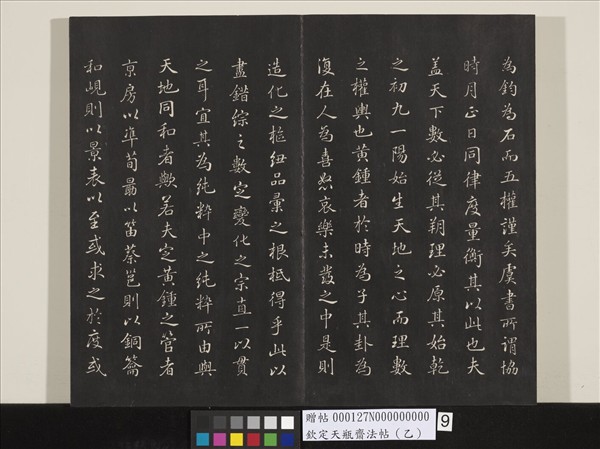 為鈞為石而五權謹矣虞書所謂協
時月正日同律度量衡其以此也夫
蓋天下數必從其朔理必原其始乾
之初九一陽始生天地之心而理數
之權輿也黃鍾者於時為子其卦為
復在人為喜怒哀樂未發之中是則
造化之樞紐品彙之根柢得乎此以
盡錯綜之數定變化之宗直一以貫
之耳宜其為純粹中之純粹所由與
天地同和者歟若夫定黃鍾之管者
京房以準荀勗以笛蔡邕則以銅籥
和峴則以景表以至或求之於度或
贈帖 000127N000000000
欽定天瓶齋法帖（乙）
9